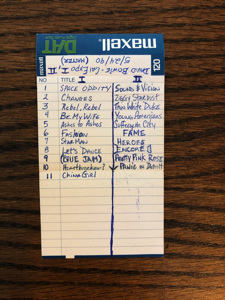 maxell
DAT
120
DAVID BOWIE - Cal Expo I, II
5/24/90 (MASTER)
NO TITLE I II
1 SPACE ODDITY SOUND & VISION
2 CHANGES ZIGGY STARDUST
3 REBEL, REBEL THIN WHITE DUKE
4 BE MY WIFE YOUNG AMERICANS
5 ASHES TO ASHES SUFFRAGETTE CITY
6 FASHION FAME
7 STARMAN HEROES
8 LET'S DANCE ENCORE
9 (BLUE JAM) PRETTY PINK ROSE
10 PANIC in Detroit
11 CHINA GIRL